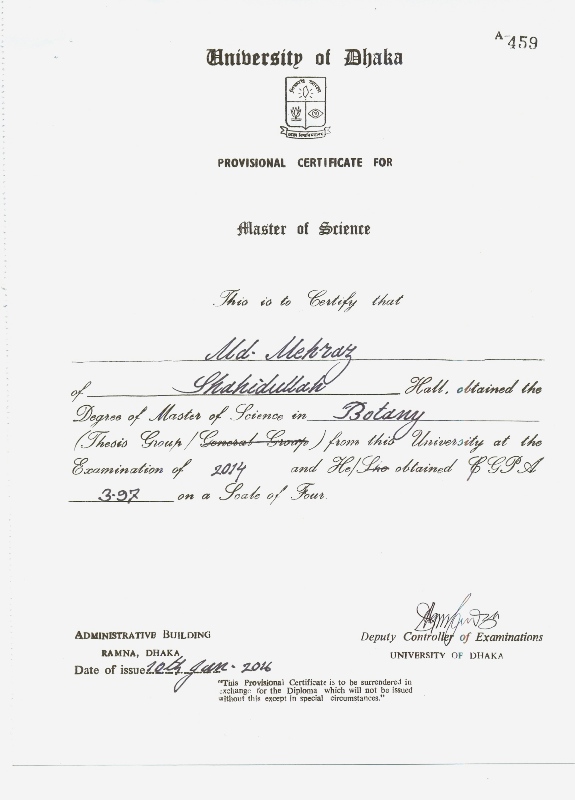 A-459
University of Dhaka
PROVISIONAL CERTIFICATE FOR
Master of Science
This is to Certify that
Md. Mehraz
of Shahidullah Hall, obtained the
Degree of Master of Science in Botany
(Thesis Group/General Group) from this University at the
Examination of 2014 and He/She obtained CGPA
3.97 on a Scale of Four.
Deputy Controller of Examinations
UNIVERSITY OF DHAKA
ADMINISTRATIVE BUILDING
RAMNA, DHAKA
Date of issue 10th Jan. 2016
"This Provisional Certificate is to be surrendered in
exchange for the Diploma which will not be issued
without this except in special circumstances."